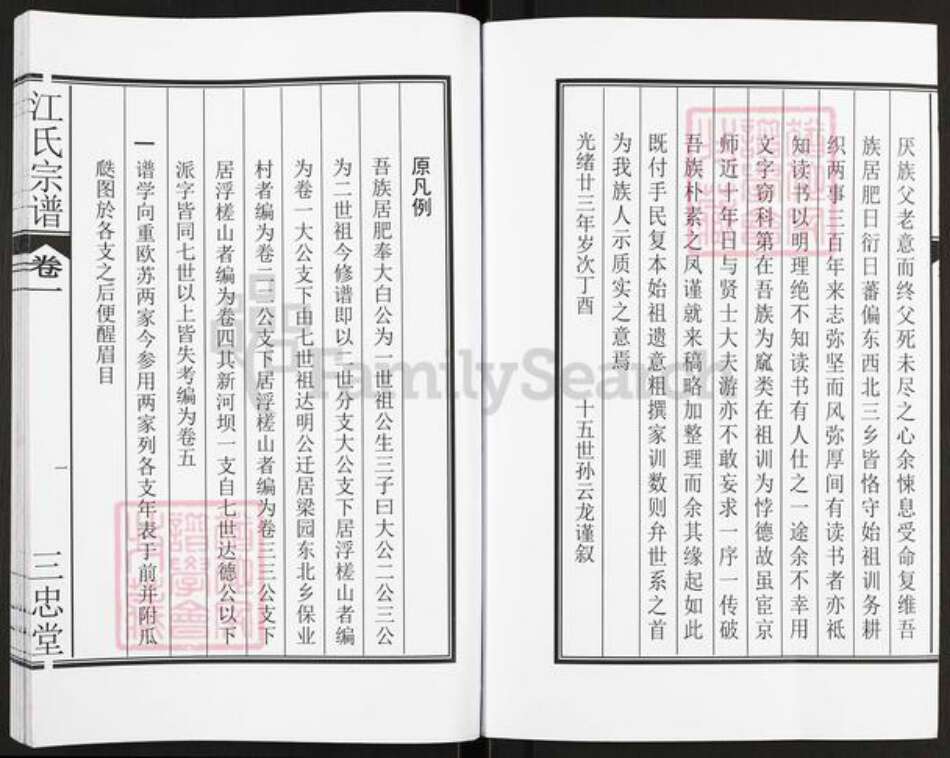 厌族父老意而终父死未尽之心余悚息受命复维吾
族居肥日衍日蕃偏东西北三乡皆恪守始祖训务耕
织两事三百年来志弥坚而风弥厚间有读书者亦祗
知读书以明理绝不知读书有人仕之一途余不幸用
文字窃科第在吾族为窳类在祖训为悖德故虽宦京
师近十年日与贤士大夫游亦不敢妄求一序一传破
吾族朴素之风谨就来稿略加整理而余其缘起如此
既付手民复本始祖遗意粗撰家训数则弁世系之首
为我族人示质实之意焉
光绪廿三年岁次丁酉 十五世孙云龙谨叙
原凡例
吾族居肥奉大白公为一世祖公生三子曰大公二公三公
为二世祖今修谱即以二世分支大公支下居浮槎山者编
为卷一大公支下由七世祖达明公迁居梁园东北乡保业
村者编为卷二二公支下居浮槎山者编为卷三三公支下
居浮槎山者编为卷四其新河坝一支自七世达德公以下
派字皆同七世以上皆失考编为卷五
一 谱学向重欧苏两家今参用两家列各支年表于前并附瓜
瓞图於各支之后便醒眉目
江氏宗谱
卷一
一
三忠堂
FamilySearch